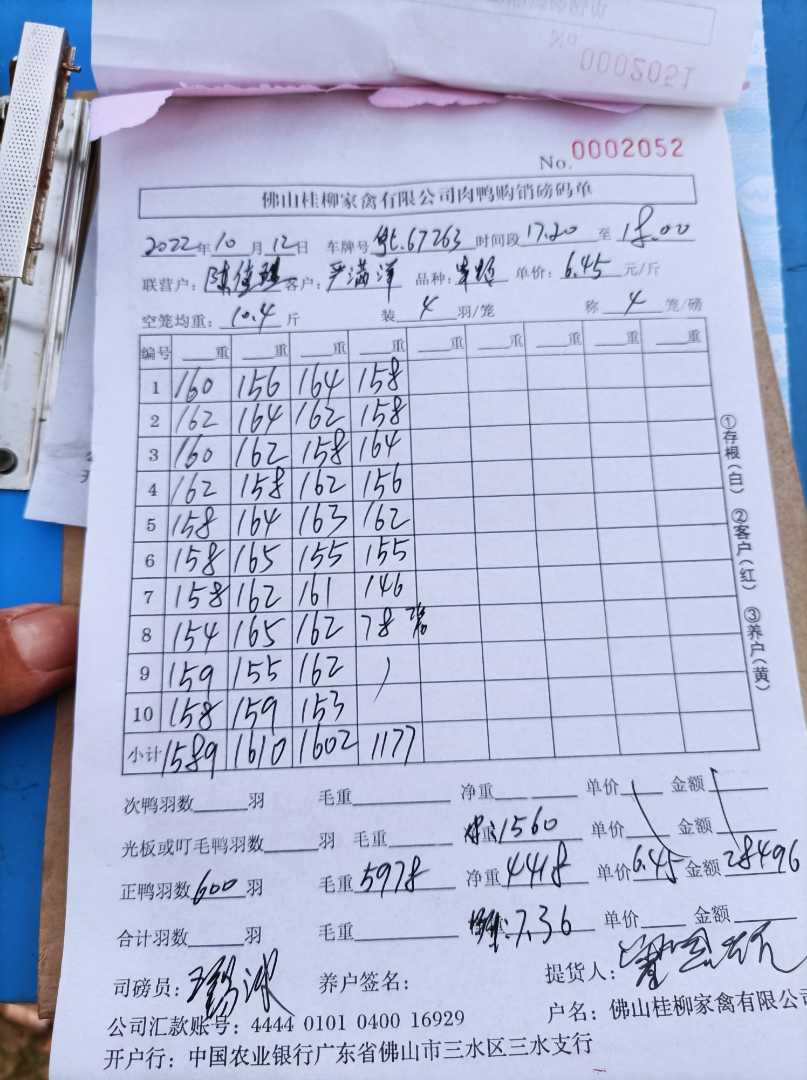 0002051
No
No. 0002052
佛山桂柳家禽有限公司肉鸭购销磅码单
2022年10月12日 车牌号 67263 时间段 17.20 至 18.00
联营户: 客户:严满洋 品种: 单价:6.45元/斤
空笼均重:10.4斤 装4羽/笼 称4笼/磅
编号 重 重 重 重 重 重 重 重 重
1 160 156 164 158
2 162 164 162 158
3 160 162 158 164
4 162 158 162 156
5 158 164 163 162
6 158 165 155 155
7 158 162 161 146
8 154 165 162 78
9 159 155 162
10 158 159 153
小计 1589 1610 1602 1177
①存根(白) ②客户(红) ③养户(黄)
次鸭羽数 羽 毛重 净重 单价 金额
光板或叮毛鸭羽数 羽 毛重 重 1560 单价 金额
正鸭羽数 600 羽 毛重 5978 净重 4418 单价 6.45 金额 28496
合计羽数 羽 毛重 7.36 单价 金额
司磅员: 养户签名: 提货人:
公司汇款账号: 4444 0101 0400 16929 户名: 佛山桂柳家禽有限公司
开户行: 中国农业银行广东省佛山市三水区三水支行